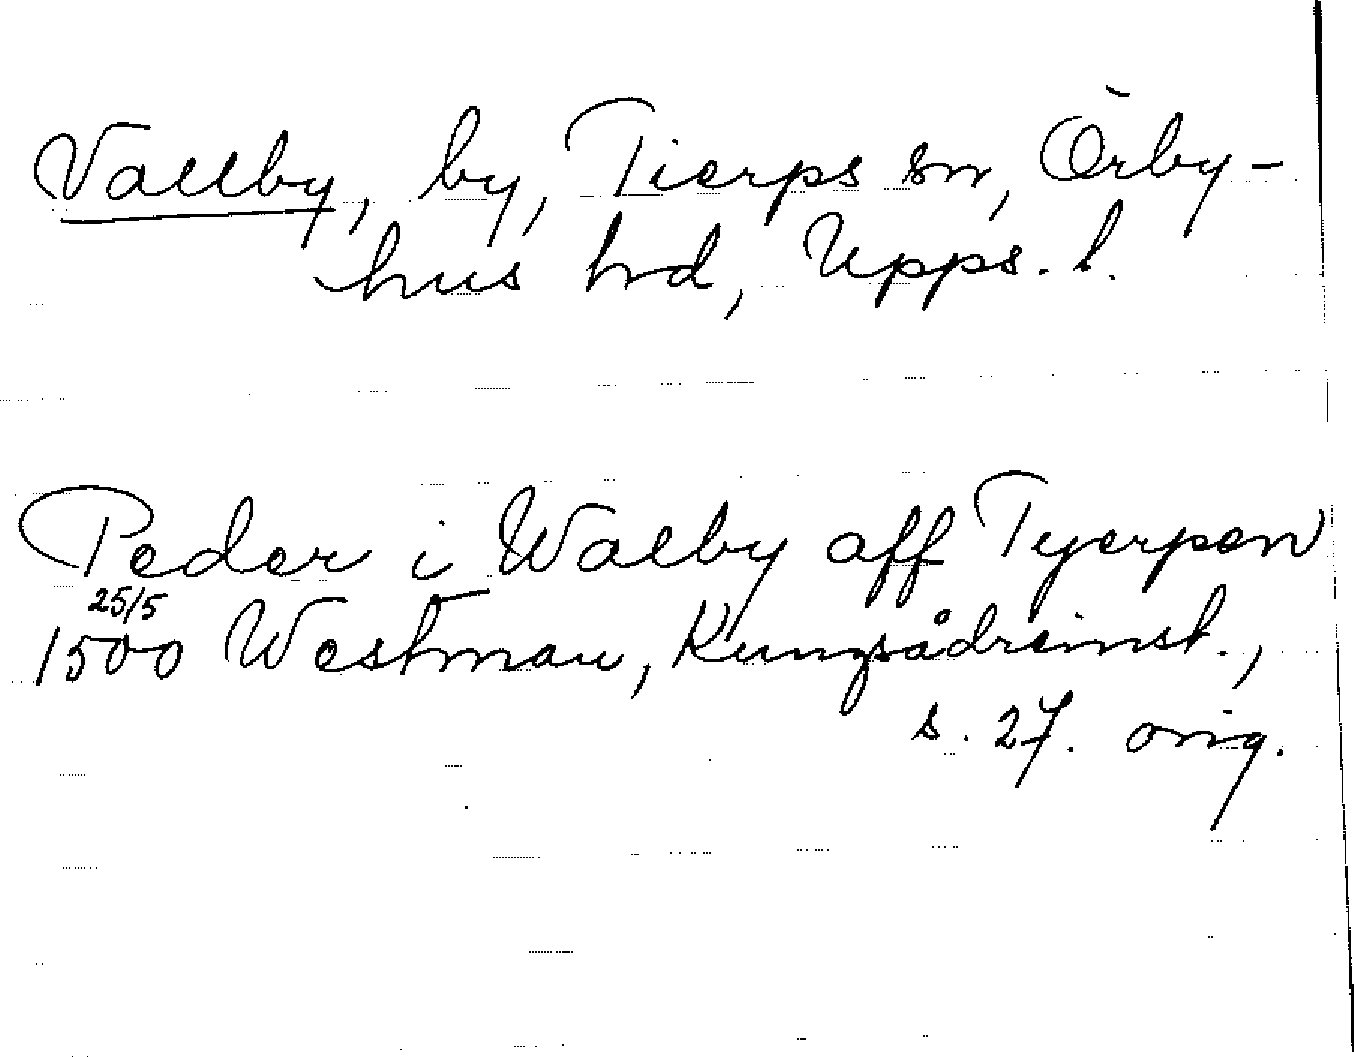 Vallby, by, Tierps sn, Örby-
hus hrd, Upps. l.
Peder i Walby aff Tyerpen
25/5
1500 Westman, Kungsådreinst.,
s. 27. orig.